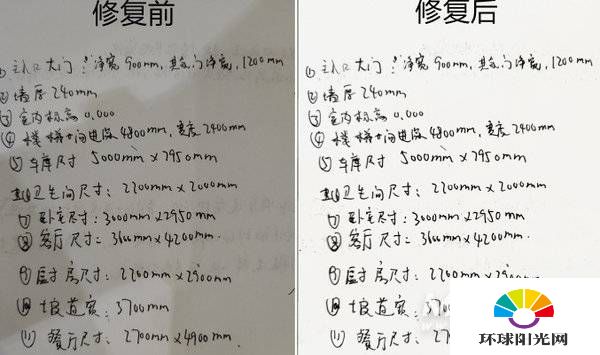 修复前
① 主入口大门:净宽900mm,其余门净宽,1200mm
② 墙厚240mm
③ 室内标高0.000
④ 楼梯间进深4800mm,宽度2400mm
⑤ 车库尺寸 5000mm×2950mm
卫生间尺寸:2200mm×2000mm
⑦ 卧室尺寸:3000mm×2950mm
⑧ 客厅尺寸:3600mm×4200mm.
⑨ 厨房尺寸:2200mm×2900mm
⑩ 坡道宽:3700mm
⑪ 餐厅尺寸:2700mm×4900mm
修复后
① 主入口大门:净宽900mm,其余门净宽,1200mm
② 墙厚240mm
③ 室内标高0.000
④ 楼梯间进深4800mm,宽度2400mm
⑤ 车库尺寸 5000mm×2950mm
卫生间尺寸:2200mm×2000mm
⑦ 卧室尺寸:3000mm×2950mm
⑧ 客厅尺寸:3600mm×4200mm.
⑨ 厨房尺寸:2200mm×2900mm
⑩ 坡道宽:370
⑪ 餐厅尺寸:27
环球阳光网